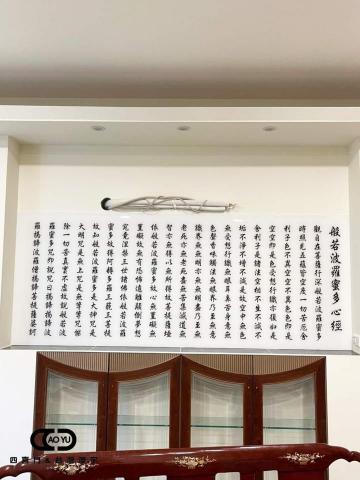 般若波羅蜜多心經
觀自在菩薩行深般若波羅蜜多
時照見五蘊皆空度一切苦厄舍
利子色不異空空不異色色即是
空空即是色受想行識亦復如是
舍利子是諸法空相不生不滅不
垢不淨不增不減是故空中無色
無受想行識無眼耳鼻舌身意無
色聲香味觸法無眼界乃至無意
識界無無明亦無無明盡乃至無
老死亦無老死盡無苦集滅道無
智亦無得以無所得故菩提薩埵
依般若波羅蜜多故心無罣礙無
罣礙故無有恐怖遠離顛倒夢想
究竟涅槃三世諸佛依般若波羅
蜜多故得阿耨多羅三藐三菩提
故知般若波羅蜜多是大神咒是
大明咒是無上咒是無等等咒能
除一切苦真實不虛故說般若波
羅蜜多咒即說咒曰揭諦揭諦波
羅揭諦波羅僧揭諦菩提薩婆訶
CAO YU